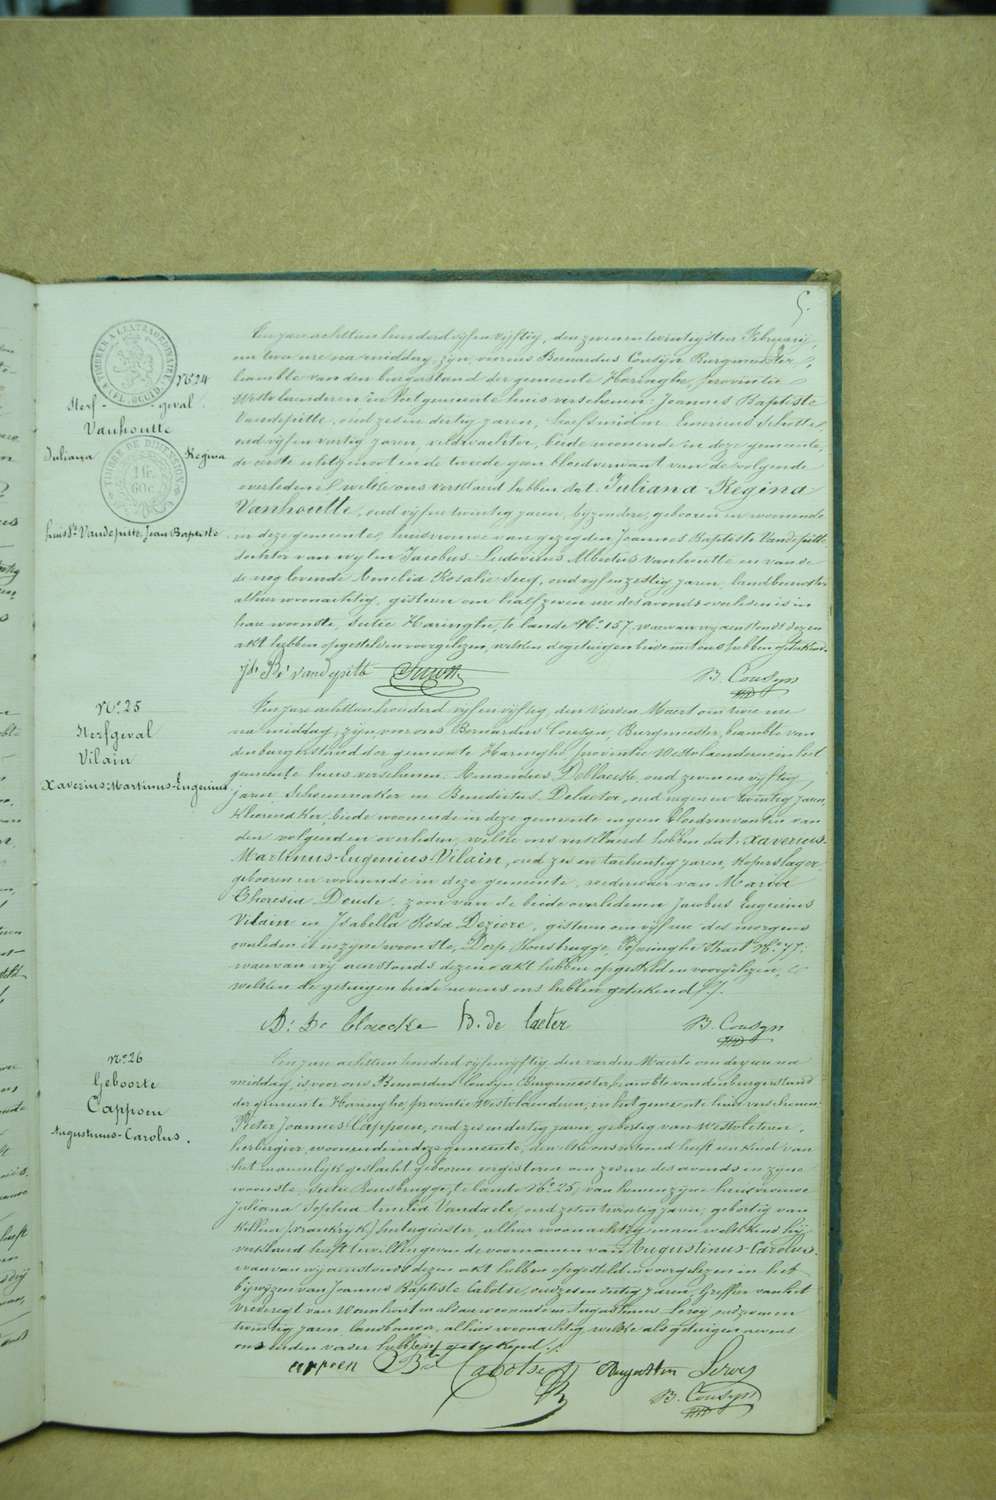 5.
TIMBRE A L'EXTRAORDINAIRE
N° 24
Sterf-geval
Vanhoutte
Juliana Regina
TIMBRE DE DIMENSION
huisv. Vandeputte, Jean Baptiste
En jare achttien honderd vyf en vyftig, den zeven en twintigsten February,
om twee ure na middag, zyn voor ons Bernardus Cousyn Burgmeester,
beambte van den burgerstand der gemeente Haringhe, provintie
Westvlaenderen in het gemeente huis verschenen: Joannes Baptiste
Vandeputte, oud zes en dertig jaren, hoefsmid en Emericus Schotte
oud vyf en veertig jaren, veldwachter, beide woonende in deze gemeente,
de eerste echtgenoot en de tweede geen bloedverwant van de volgende
overledene, welke ons verklaard hebben dat Juliana Regina
Vanhoutte, oud vyf en twintig jaren, byzondere, geboren en wonende
in deze gemeente, huisvrouwe van gezegden Joannes Baptiste Vandeputte
dochter van wylen Jacobus Ludovicus Albertus Vanhoutte en van de
de nog levende Amelia Rosalie, oud vyf en zestig jaren, landbouwster
alhier woonachtig, gisteren om half zeven ure des avonds overleden is in
hare woonste, Sectie Haringhe, te lande N° 157, waarvan wy aenstonds dezen
akt hebben opgesteld en voorgelezen, welken de getuigen beide met ons hebben geteekend.
B. Cousyn
N° 25
Sterfgeval
Vilain
Xaverius-Martinus-Eugenius
En jare achttien honderd vyf en vyftig, den vierden Maert om twee ure
na middag, zyn voor ons Bernardus Cousyn, Burgmeester, beambte van
den burgerstand der gemeente Haringhe, provintie Westvlaenderen in het
gemeente huis verschenen: Amandus Deblaecke, oud zeven en vyftig
jaren, Schoenmaker en Benedictus Delaeter, oud negen en twintig jaren
kleermaker, beide woonende in deze gemeente en geen bloedverwanten van
den volgenden overleden, welke ons verklaard hebben dat, Xaverius-
Martinus-Eugenius Vilain, oud zes en tachentig jaren, koperslager,
geboren en woonende in deze gemeente, weduwaer van Maria
Theresia Doude, zoon van de beide overledenen Jacobus Eugenius
Vilain en Isabella Rosa Deziere, gisteren om vyf ure des morgens
overleden is in zyne woonste, Dorp Rousbrugge, Poperinghe Straet N° 77.
waervan wy aenstonds dezen akt hebben opgesteld en voorgelezen,
welken de getuigen beide nevens ons hebben geteekend.
A. De blaecke B. de laeter B. Cousyn
N° 26
Geboorte
Cappoen
Augustinus-Carolus.
En jare achttien honderd vyf en vyftig den vierden Maerte om dry ure na
middag, is voor ons Bernardus Cousyn, Burgmeester, beambte van den burgerstand
der gemeente Haringhe, provintie Westvlaenderen, in het gemeente huis verschenen
Pieter Joannes Cappoen, oud zes en dertig jaren, gebortig van Westvleteren,
herbergier, woonende in deze gemeente, den welken ons vertoond heeft een kind van
het mannelyk geslacht, geboren eergisteren om zes ure des avonds in zyne
woonste, Sectie Rousbrugge, te lande N° 25, van hem en zyne huisvrouwe
Juliana Sophia Amelia Vandaele, oud zes en twintig jaren, gebortig van
Killem (Frankryk) herbergierster, alhier woonachtig, en aen welk kind hy
verklaerd heeft te willen geven de voornamen van Augustinus-Carolus.
waarvan wy aenstonds dezen akt hebben opgesteld en voorgelezen in het
bywezen van Joannes Baptiste Cabotse, oud zes en dertig jaren, Greffier van het
Vrederegt van en aldaer woonende en Augustinus Leroy oud zeven en
twintig jaren, landbouwer, alhier woonachtig, welke als getuigen nevens
ons en den vader hebben geteekend.
Cappoen J Bte Cabotse Augustin Leroy
B. Cousyn